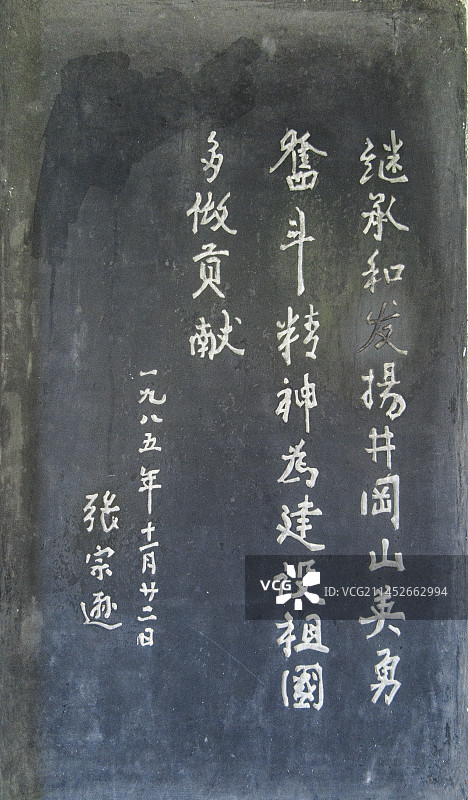 继承和发揚井岡山英勇
奮斗精神為建設祖國
多做贡献
一九八五年十一月廿二日
张宗逊
VCG ID:VCG211452662994